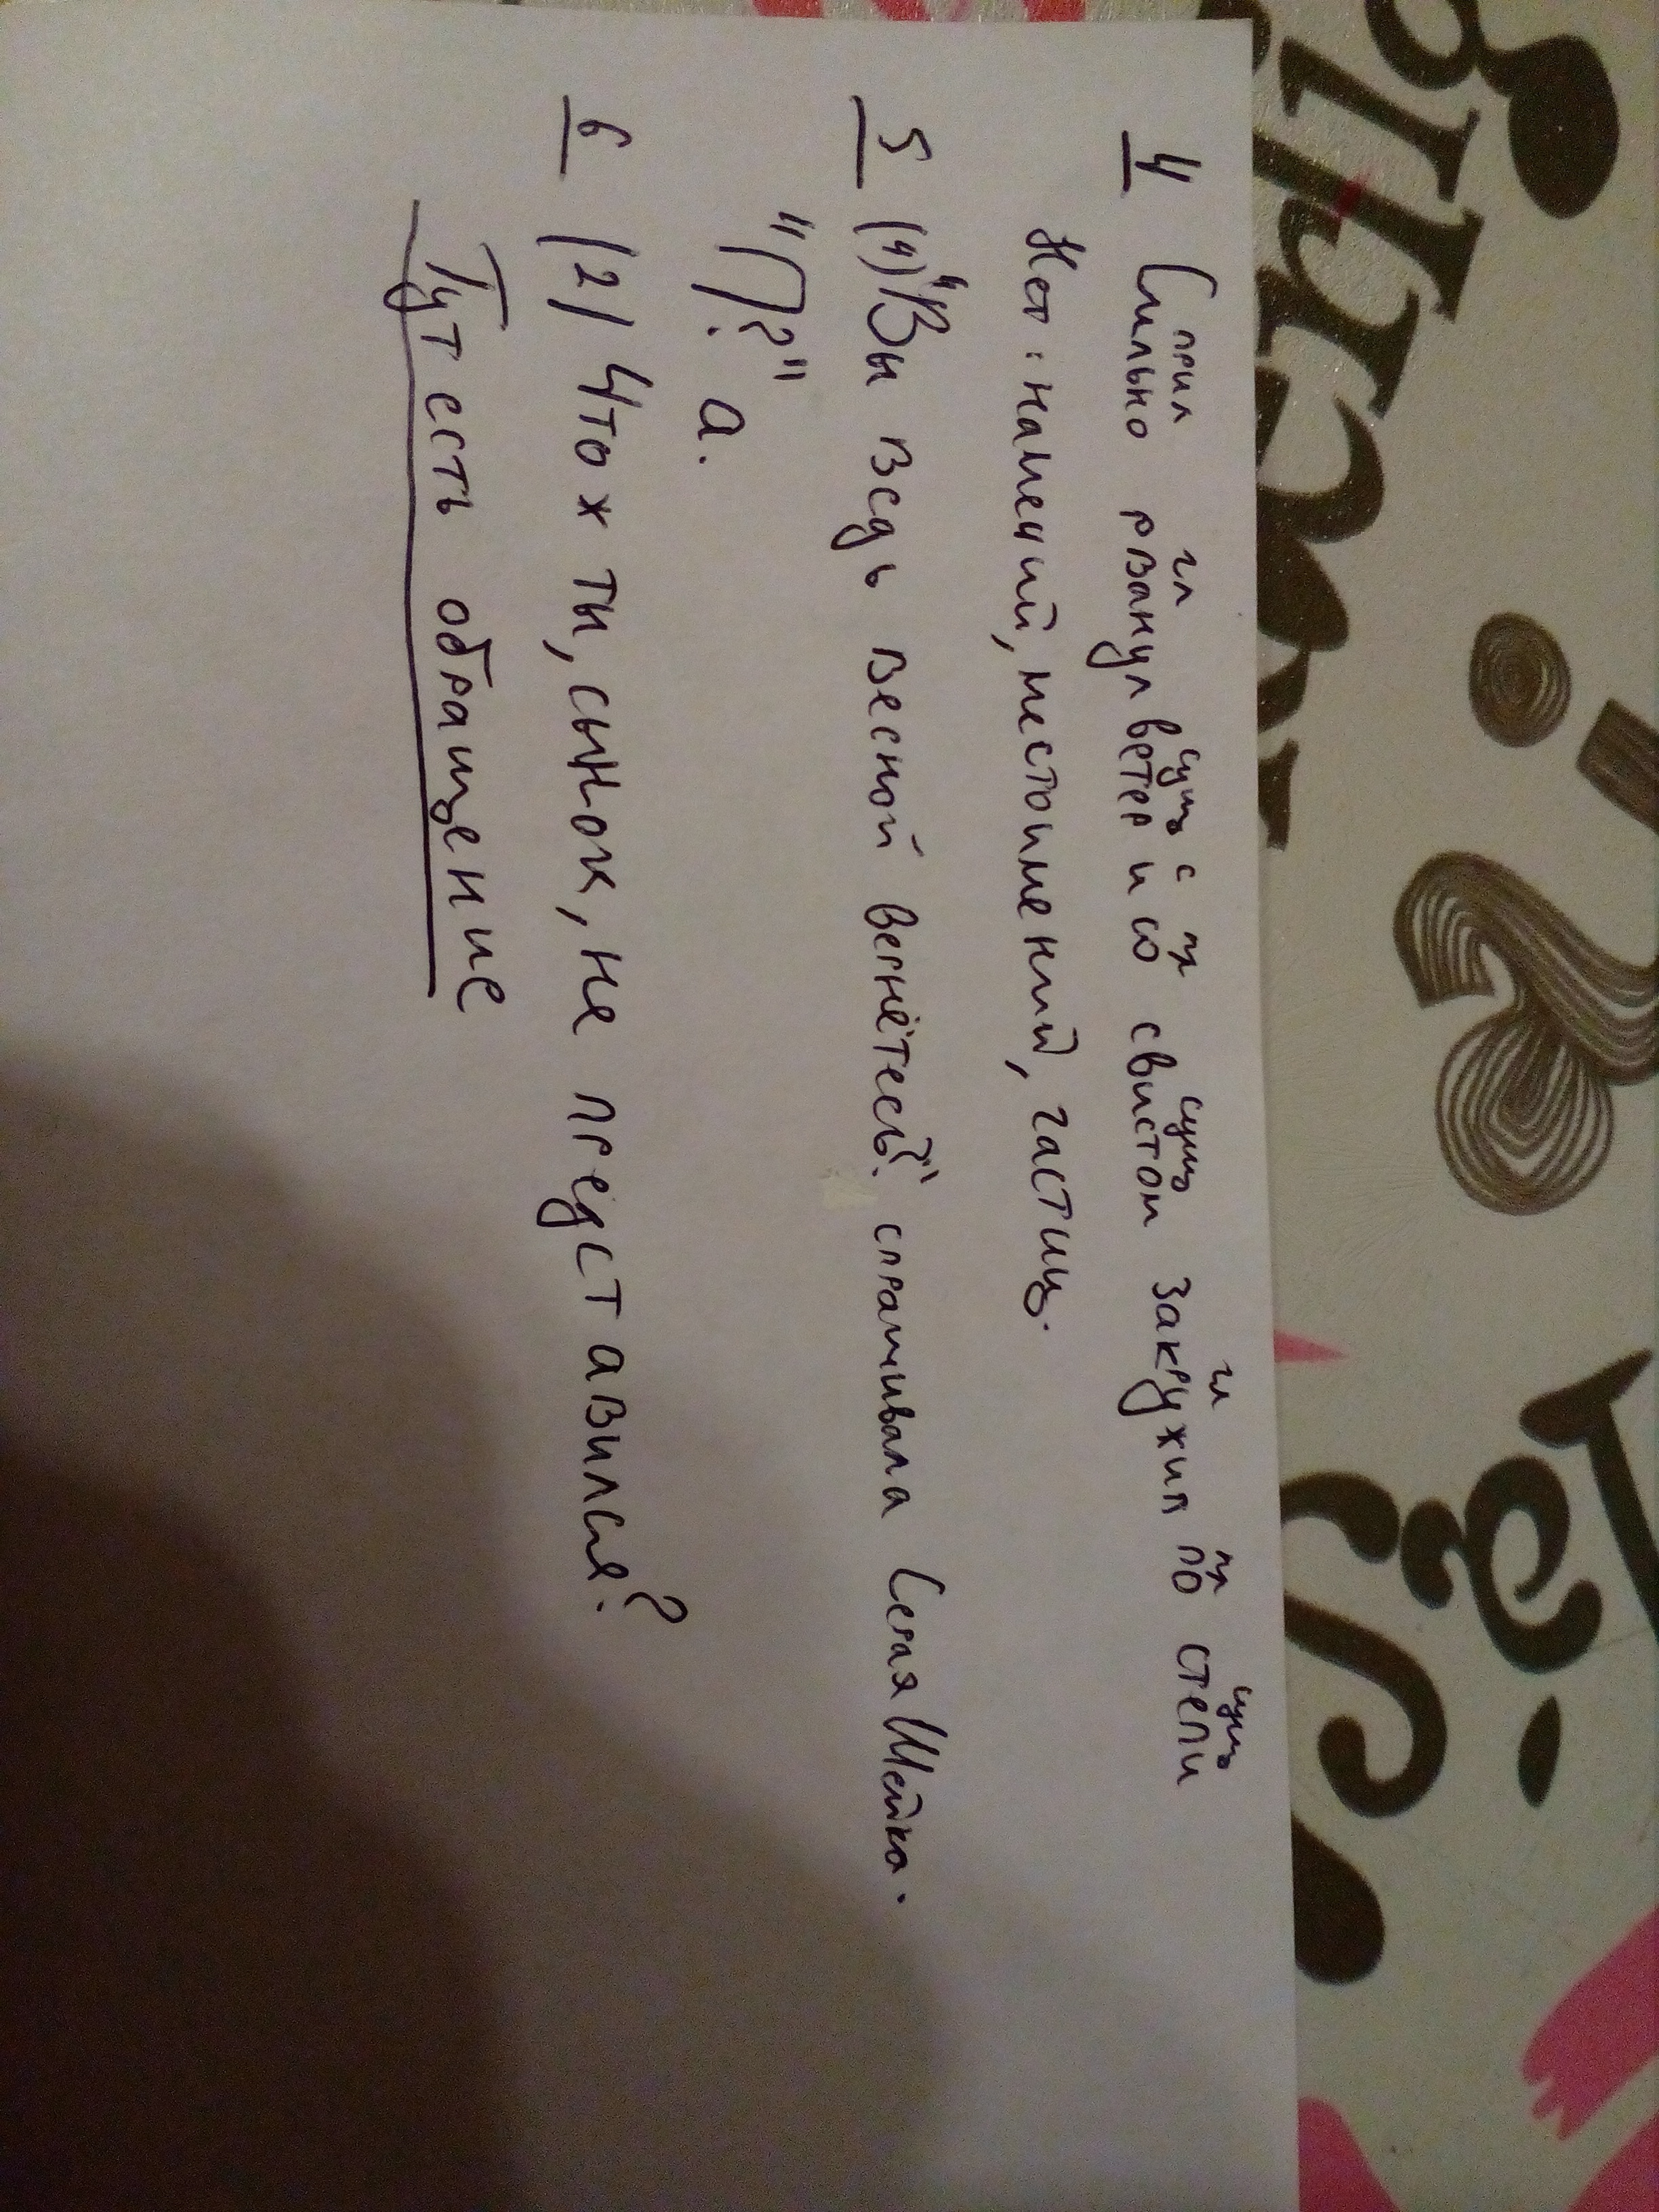 прил гл сущ с пр сущ гл пр сущ
4 Сильно рванул ветер и со свистом закружил по степи
Нет: наречий, местоимений, частиц.
5 (4) "Вы ведь весной вернётесь?" спрашивала Серая Шейка.
"П?" а.
6 (2) Что ж ты, сынок, не представился?
Тут есть обращение